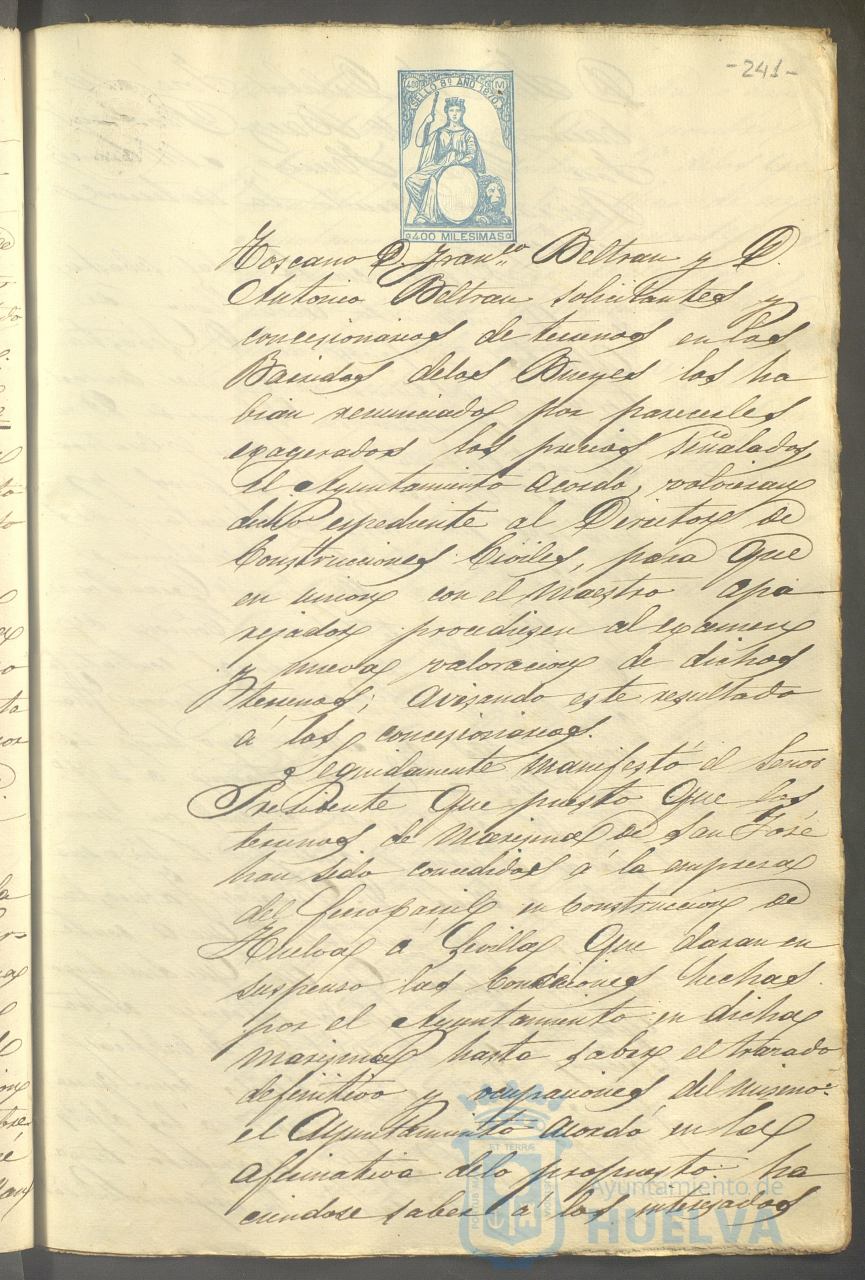 -241-
400 M
SELLO 8º AÑO 1870
400 MILESIMAS
Toscano D. Fran.co Beltran y D.
Antonio Beltran solicitantes y
concesionarios de terrenos en las
Barridas de los Bueyes los ha
bian renunciado por parecerles
exagerados los precios señalados,
el Ayuntamiento acordó,
dicho espediente al Director de
Construcciones Civiles, para que
en union con el Maestro apa
rejador procediesen al examen
y nueva valoracion de dichos
terrenos; avisando este resultado
á los concesionarios.
Seguidamente manifestó el Señor
Presidente que puesto que los
terrenos de Marisma de San José
han sido concedidos á la empresa
del ferro-carril en construccion de
Huelva á Sevilla que daran en
suspenso las hechas
por el Ayuntamiento en dicha
marisma hasta saber el trazado
definitivo y ocupaciones del mismo:
el Ayuntamiento acordó en la
afirmativa de lo propuesto ha
ciendose saber á los interesados
ET TERRÆ
Ayuntamiento de
HUELVA